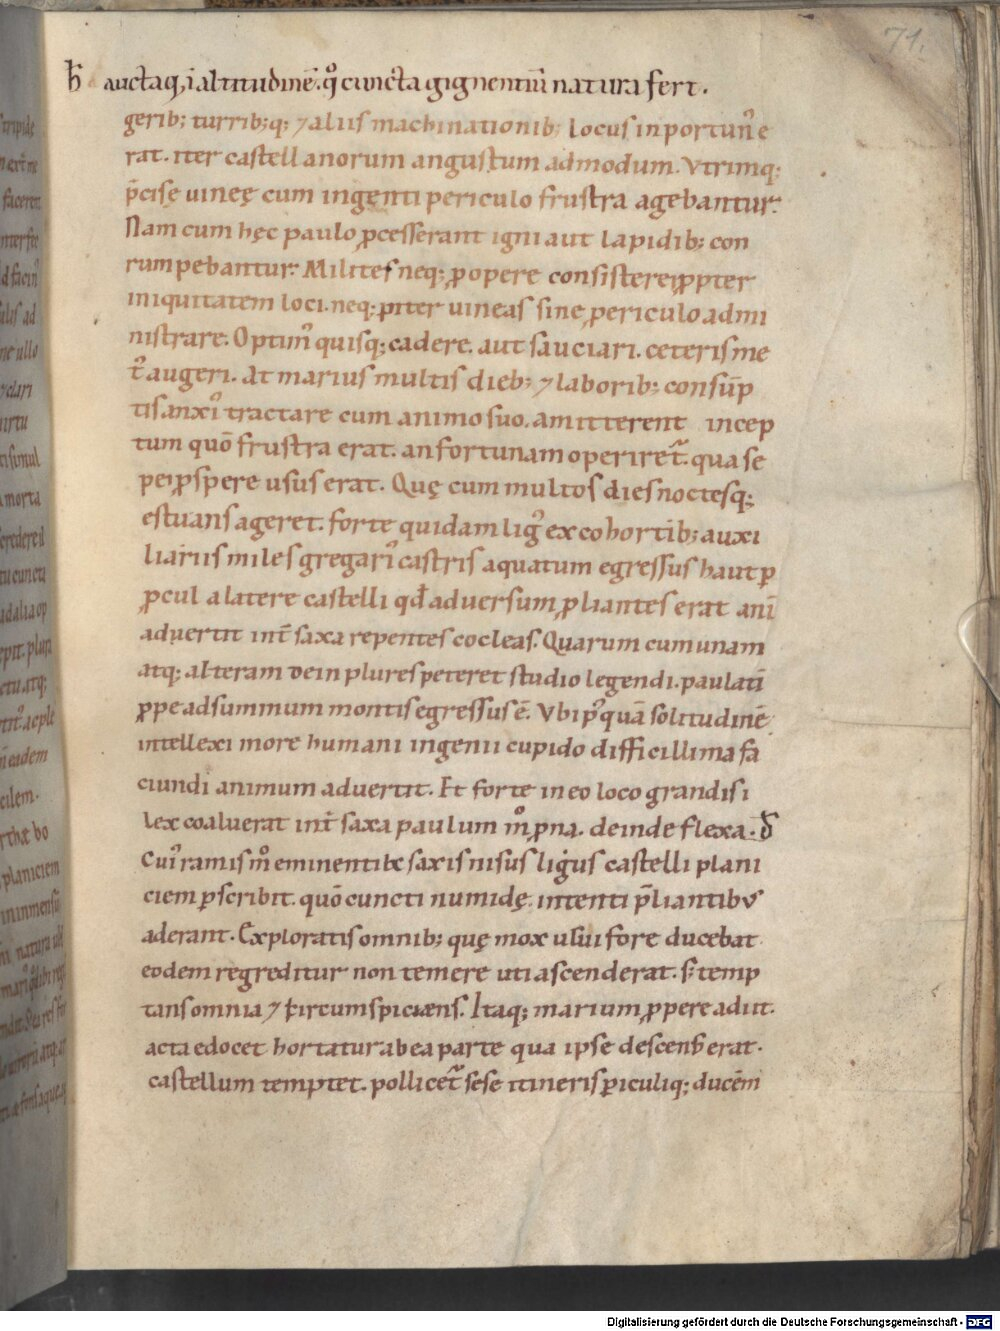 71.
ħ auctaq; ī altitudinē. qͦ cuncta gignentiū natura fert.
gerib; turrib;q; ⁊ aliis machinationib; locus inportun̄ e
rat. iter castellanorum angustum admodum. Vtrimq;
p̄cisę uineę cum ingenti periculo frustra agebantur.
Nam cum hęc paulo ꝓcesserant igni aut lapidib; con
rumpebantur. Milites neq; ꝓ opere consistere ꝓpter
iniquitatem loci. neq; int̄ uineas sine periculo admi
nistrare. Optim᾽ quisq; cadere. aut sauciari. ceteris me
t᾽ augeri. At marius multis dieb; ⁊ laborib; consūp
tis anxi᾽ tractare cum animo suo. amitterent incep
tum quō frustra erat. an fortunam operiret᷑. qua se
pe ꝓspere usus erat. Quę cum multos dies noctesq;
estuans ageret. forte quidam lig᾽ ex cohortib; auxi
liariis miles gregari᾽ castris aquatum egressus haut p
ꝓcul a latere castelli qđ aduersum p̄liantes erat ani
aduertit int̄ saxa repentes cocleas. Quarum cum unam
atq; alteram dein plures peteret studio legendi. paulatī
ꝓpe ad summum montis egressus ē. Vbi p᾽quā solitudinē
intellexi more humani ingenii cupido difficillima fa
ciundi animum aduertit. Et forte in eo loco grandis i
lex coaluerat int̄ saxa paulum mͦ prna. deinde flexa. đ
Cui᾽ ramis mͦ eminentib; saxis nisus ligus castelli plani
ciem pscribit. quō cuncti numidę intenti p̄liantibus
aderant. Exploratis omnib; quę mox usui fore ducebat
eodem regreditur non temere uti ascenderat. s; temp
tans omnia ⁊ circumspiciens. Itaq; marium ꝓpere adiit.
acta edocet hortatur ab ea parte qua ipse descenderat.
castellum temptet. pollicet᷑ sese itineris ꝑiculiq; ducem
Digitalisierung gefördert durch die Deutsche Forschungsgemeinschaft - DFG